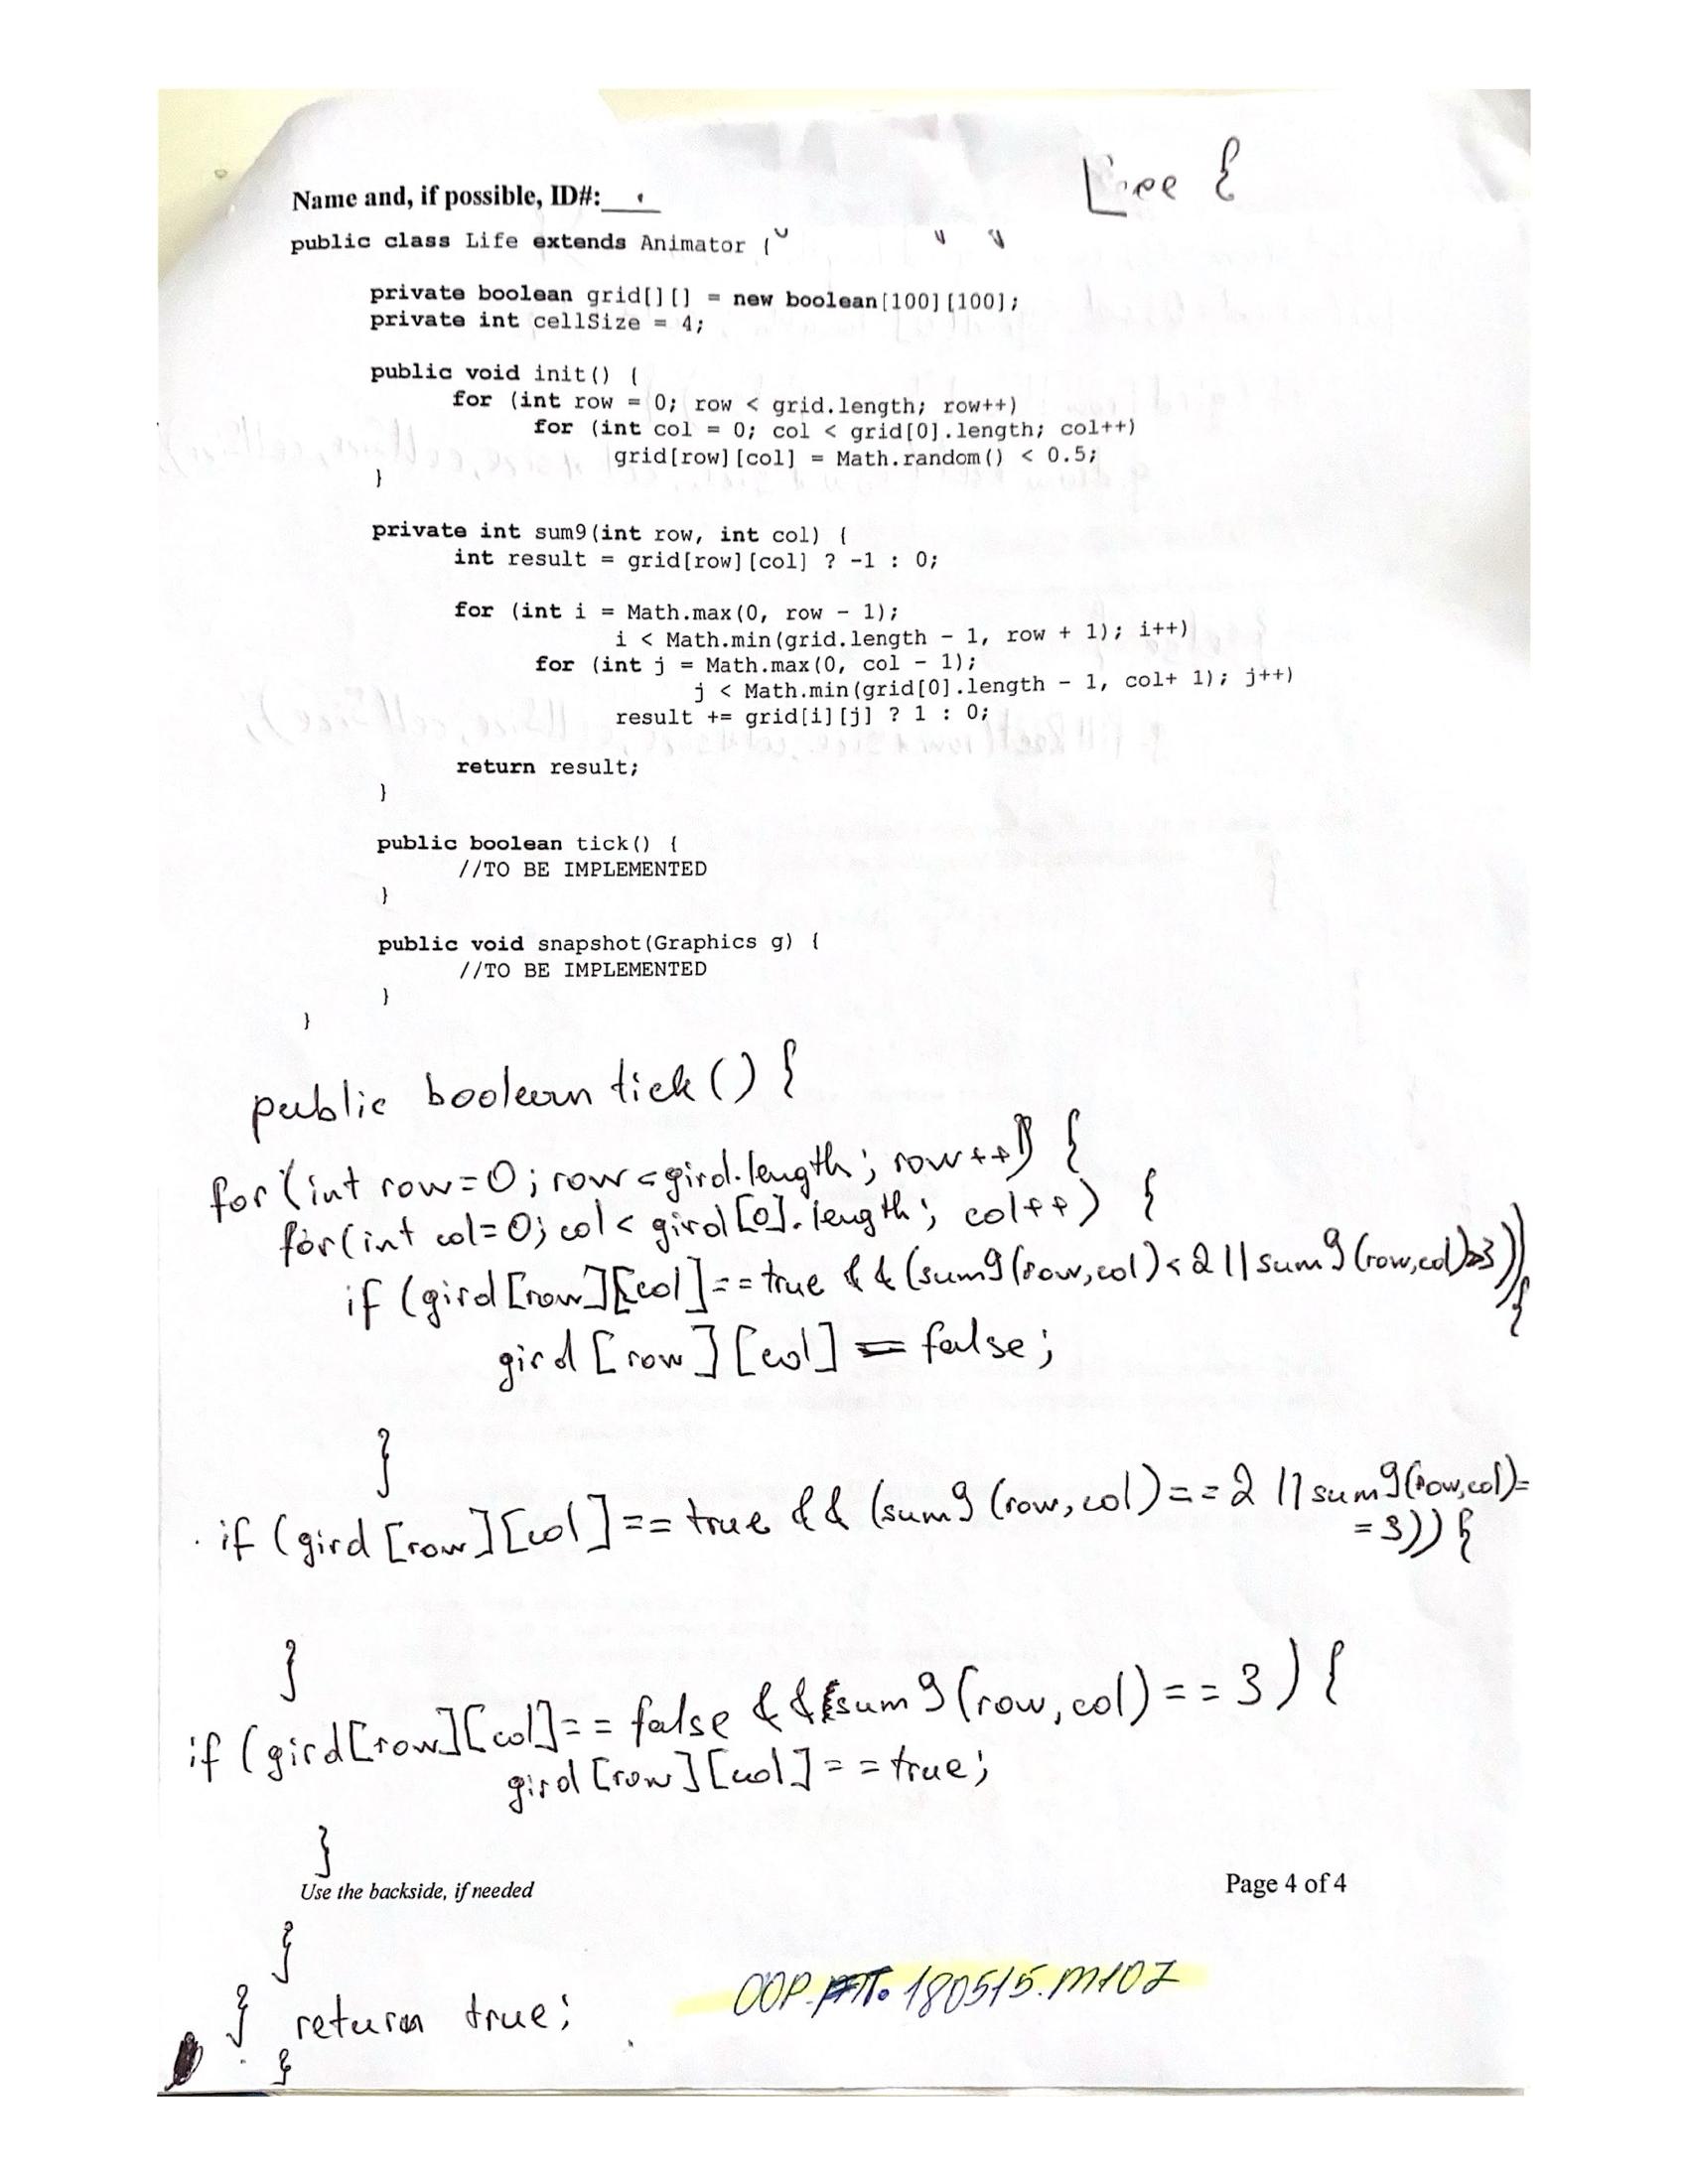 Name and, if possible, ID#:
public class Life extends Animator {
private boolean grid[][] = new boolean[100][100];
private int cellSize = 4;
public void init() {
for (int row = 0; row < grid.length; row++)
for (int col = 0; col < grid[0].length; col++)
grid[row][col] = Math.random() < 0.5;
}
private int sum9(int row, int col) {
int result = grid[row][col] ? -1 : 0;
for (int i = Math.max(0, row - 1);
i < Math.min(grid.length - 1, row + 1); i++)
for (int j = Math.max(0, col - 1);
j < Math.min(grid[0].length - 1, col+ 1); j++)
result += grid[i][j] ? 1 : 0;
return result;
}
public boolean tick() {
//TO BE IMPLEMENTED
}
public void snapshot(Graphics g) {
//TO BE IMPLEMENTED
}
}
public boolean tick() {
for (int row=0; row<gird.length; row++) {
for(int col=0; col< gird[0].length; col++) {
if (gird[row][col]==true && (sum9(row,col)<2 || sum9(row,col)>3)) {
gird[row][col] = false;
}
if (gird[row][col]==true && (sum9(row,col)==2 || sum9(row,col)=
=3)) {
}
if (gird[row][col]==false && sum9(row,col)==3) {
gird[row][col]==true;
}
Use the backside, if needed
Page 4 of 4
}
} return true;
}
180515.M107